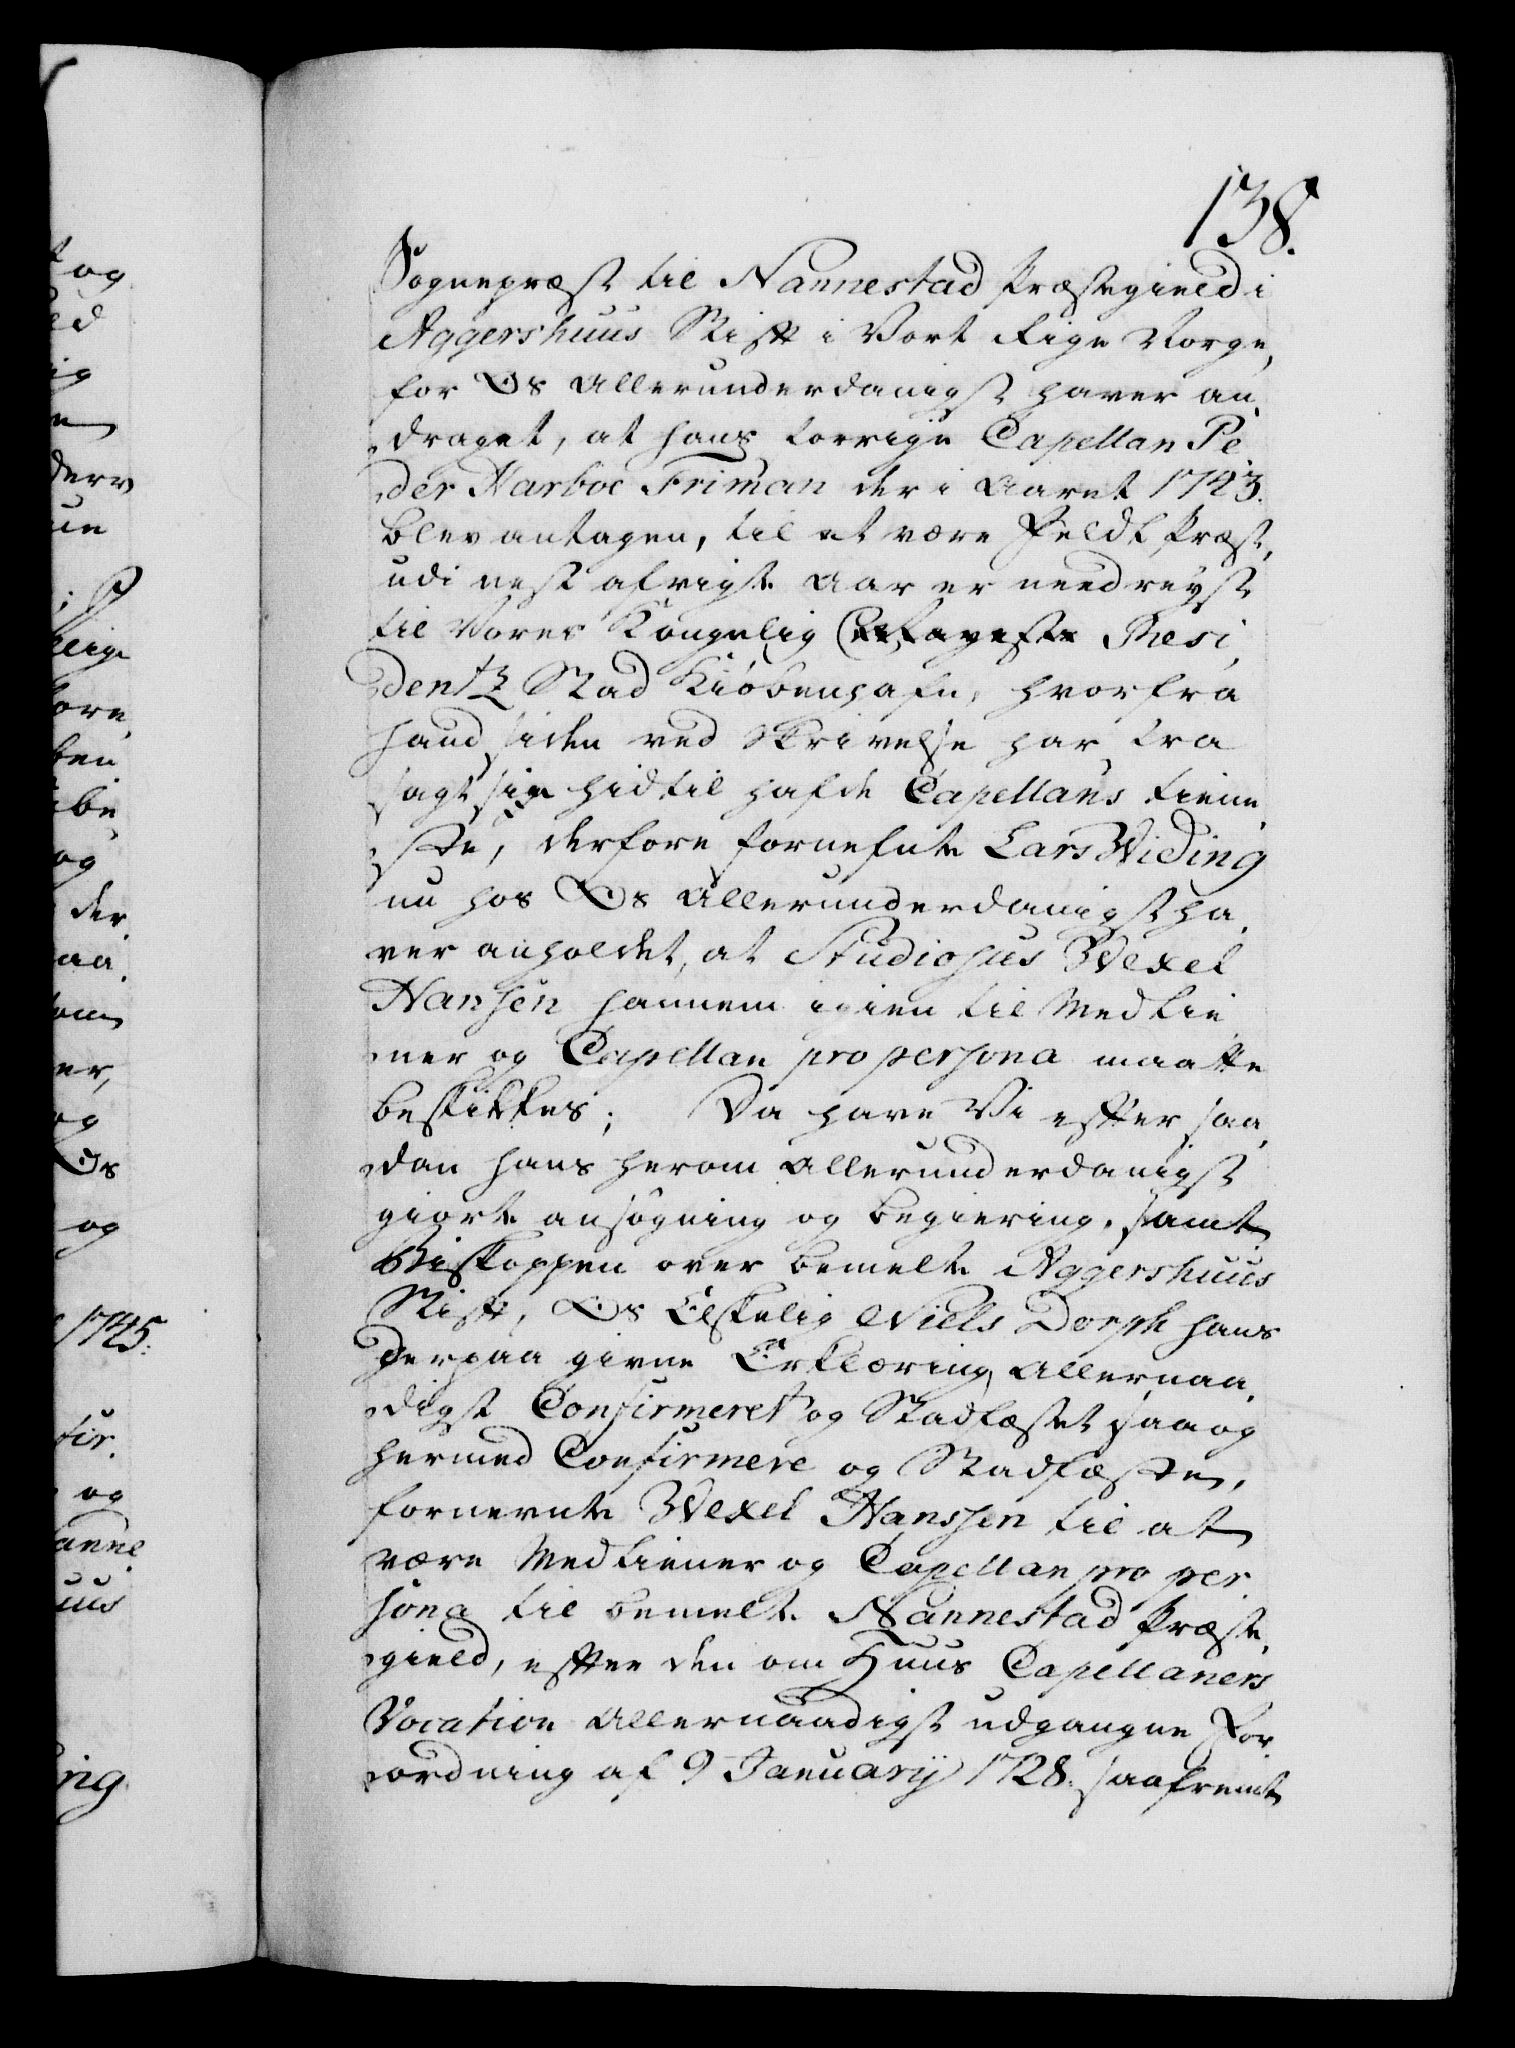 138.
Sognepræst til Nannestad Præstegield i
Aggershuus Stift i Vort Rige Norge,
for Os allerunderdanigst haver an,
draget, at hans forrige Capellan Pe
der Harboe Friman der i Aaret 1743.
blev antagen, til at være Feldt Præst,
udi nest afvigte Aar er needreyst
til Vores Kongelig Residentz
Stad Kiøbenhafn, hvorfra
hand siden ved Skrivelse har fra
sagt sig hidtil hafde Capellans tiene,
ste, derfore fornefnte Lars Widing
nu hos Os allerunderdanigst ha,
ver anholdet, at Studiosus Wexel
Hansen hannem igien til Medtie
ner og Capellan pro persona maatte
beskikkes; Da have Vi efter saa,
dan hans herom allerunderdanigst
giorte ansøgning og begiering, samt
Biskoppen over bemelte Aggershuus
Stift, Os Elskelig Niels Dorph hans
derpaa givne Erklæring allernaa,
digst Confirmeret og Stadfæstet saa og
hermed Confirmere og Stadfæste,
fornevnte Wexel Hanssen til at
være Medtiener og Capellan pro per
sona til bemelte Nannestad Præste,
gield, efter den om Huus Capellaners
Vocation allernaadigst udgangne For,
ordning af 9 Januarij 1728. saafremt